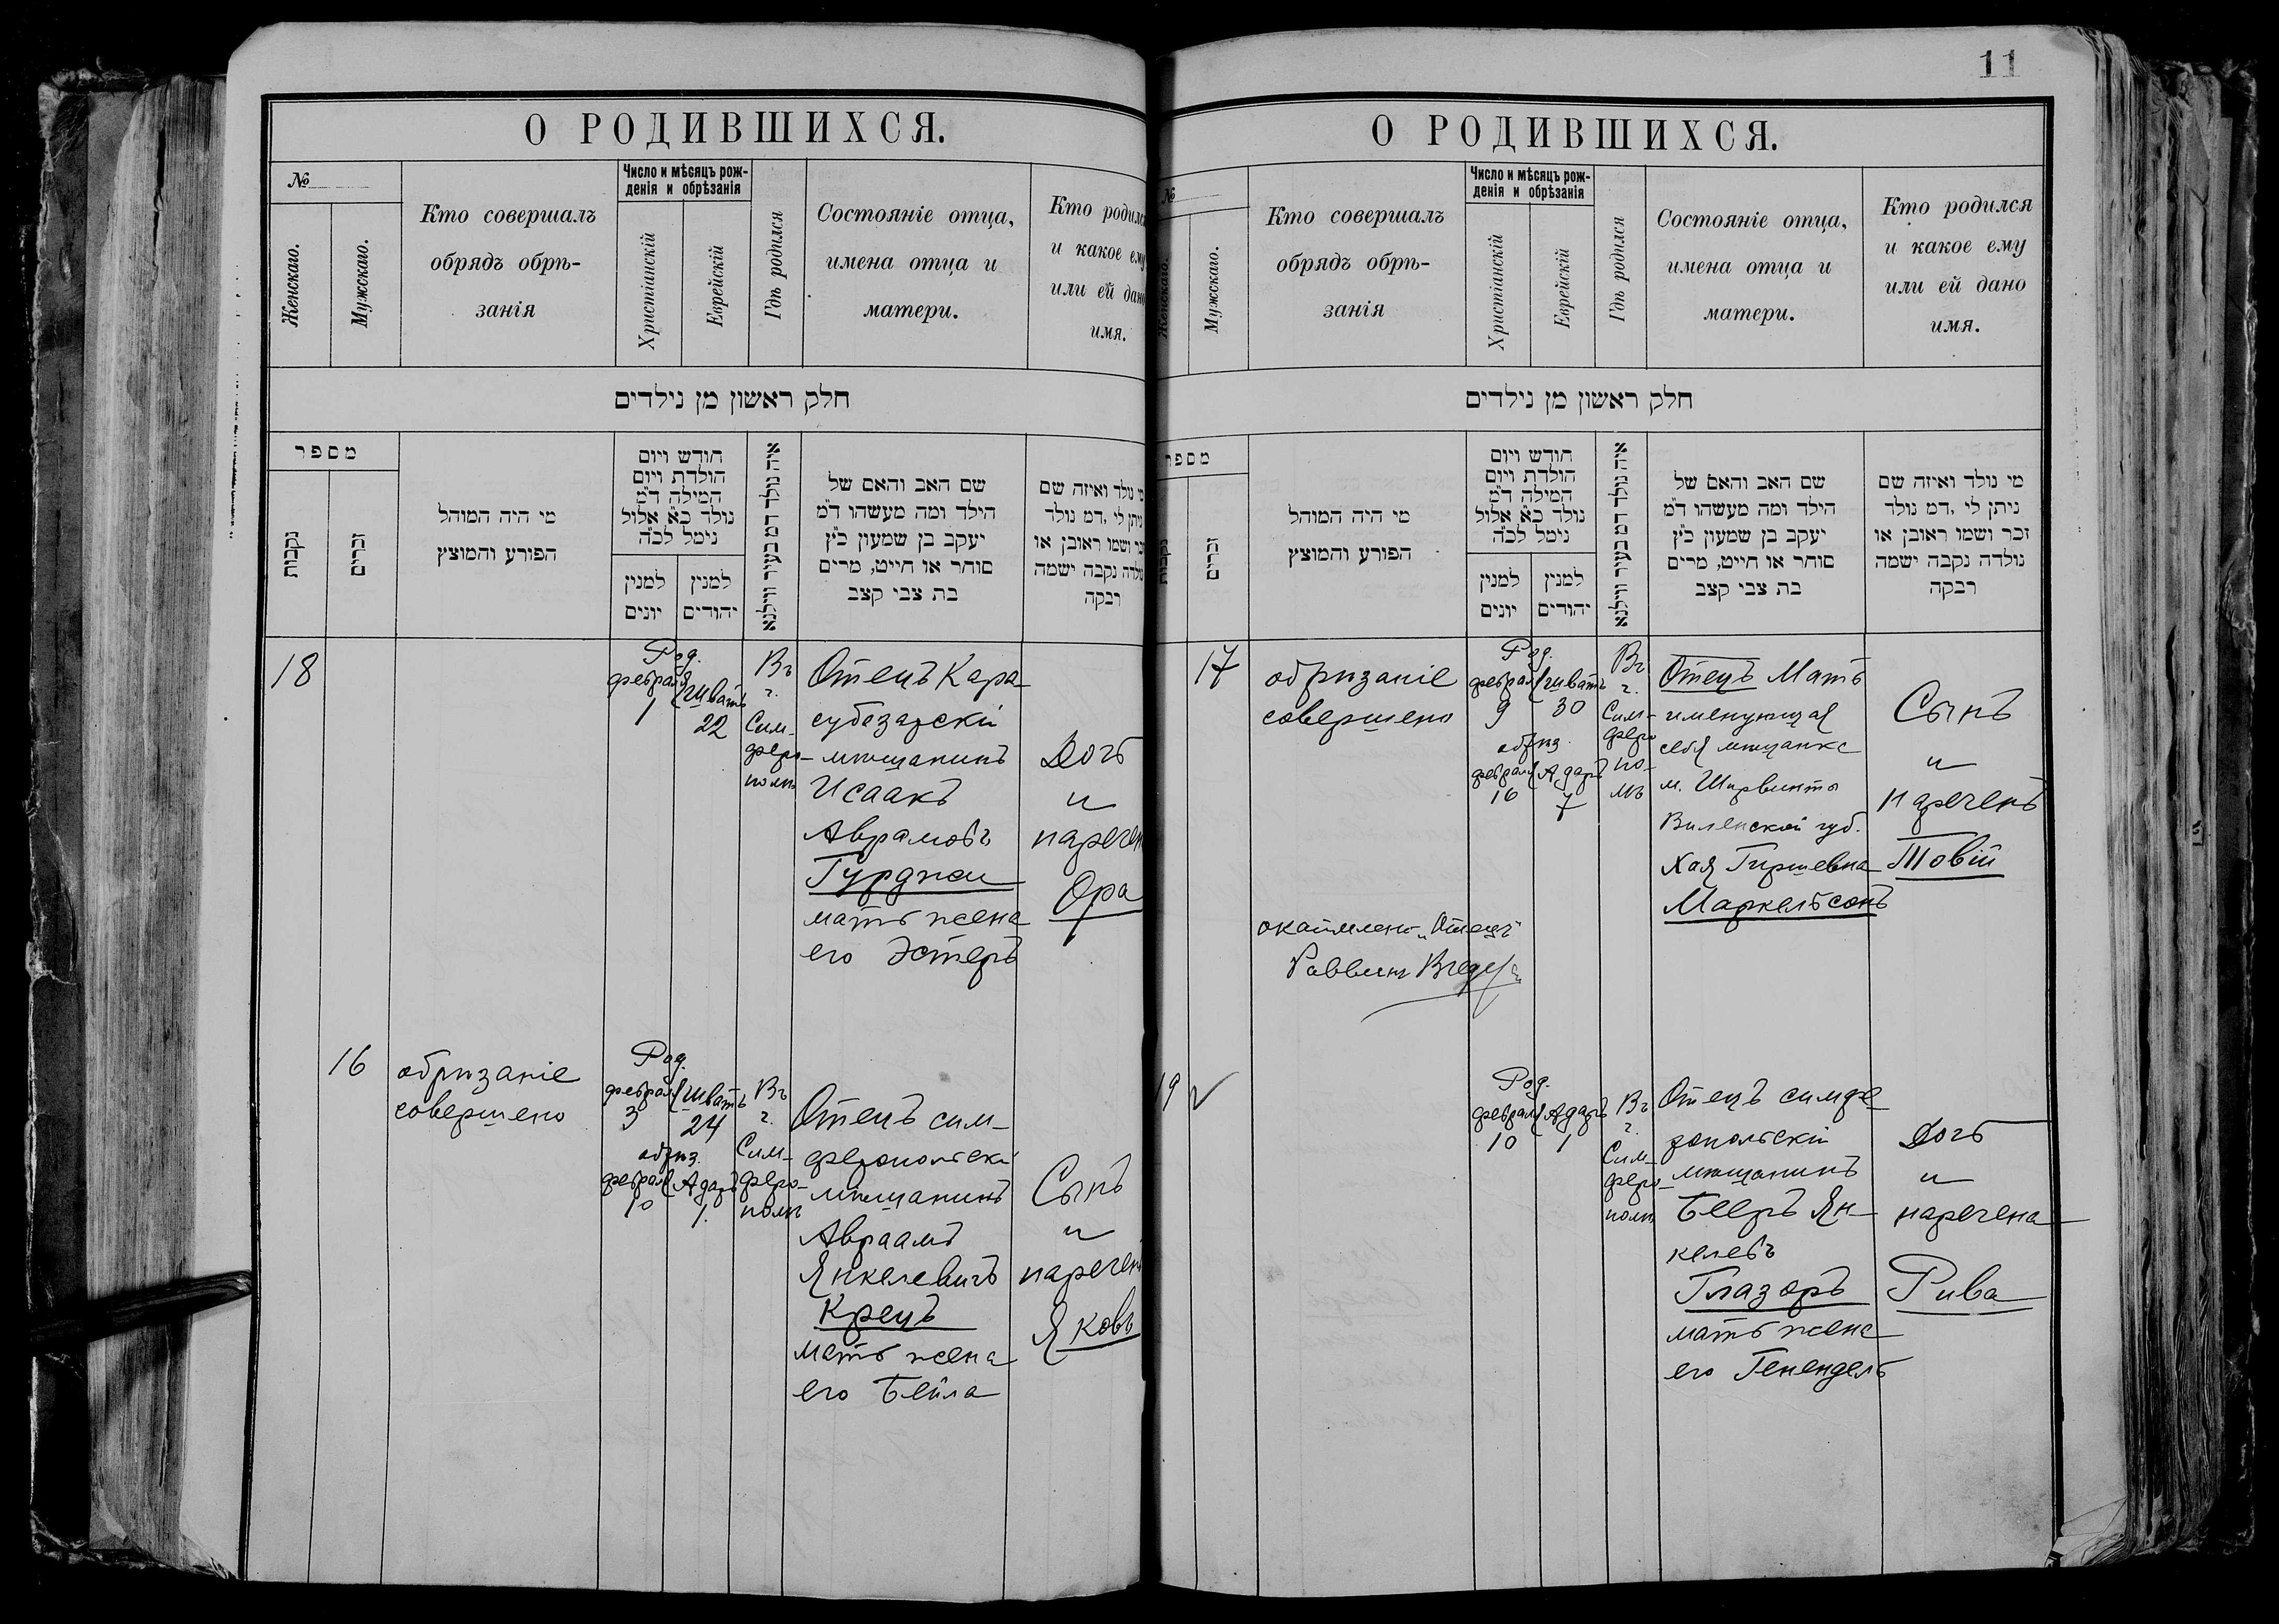 11
О РОДИВШИХСЯ.
№
Женскаго.
Мужскаго.
Кто совершалъ
обрядъ обрѣ-
занія
Число и мѣсяцъ рож-
денія и обрѣзанія
Христіанскій
Еврейскій
Гдѣ родился
Состояніе отца,
имена отца и
матери.
Кто родился
и какое ему
или ей дано
имя.
חלק ראשון מן נילדים
מספר
נקבות
זכרים
מי היה המוהל
הפורע והמוצץ
חודש ויום
הולדת ויום
המילה ד״מ
נולד כ״א אלול
נימל לכ״ה
למנין
יונים
למנין
יהודים
איה נולד דמ בעיר ווילנא
שם האב והאם של
הילד ומה מעשהו ד״מ
יעקב בן שמעון כ״ץ
סוחר או חייט, מרים
בת צבי קצב
מי נולד ואיזה שם
ניתן לי, דמ נולד
זכר ושמו ראובן או
נולדה נקבה ישמה
רבקה
18
Род.
февраля
1
Шватъ
22
Въ
г.
Сим-
феро-
полѣ
Отецъ Кара-
субазарскій
мѣщанинъ
Исаакъ
Аврамовъ
Гурджи
мать жена
его Эстеръ
Дочь
и
наречен
Ора
16
обрѣзаніе
совершено
Род.
февраля
3
Шватъ
24
обрѣз.
февраля
10
Адаръ
1.
Въ
г.
Сим-
феро-
полѣ
Отецъ сим-
феропольскій
мѣщанинъ
Авраамъ
Янкелевичъ
Крецъ
мать жена
его Бейла
Сынъ
и
нареченъ
Яковъ
О РОДИВШИХСЯ.
№
Женскаго.
Мужскаго.
Кто совершалъ
обрядъ обрѣ-
занія
Число и мѣсяцъ рож-
денія и обрѣзанія
Христіанскій
Еврейскій
Гдѣ родился
Состояніе отца,
имена отца и
матери.
Кто родился
и какое ему
или ей дано
имя.
חלק ראשון מן נילדים
מספר
נקבות
זכרים
מי היה המוהל
הפורע והמוצץ
חודש ויום
הולדת ויום
המילה ד״מ
נולד כ״א אלול
נימל לכ״ה
למנין
יונים
למנין
יהודים
איה נולד דמ בעיר ווילנא
שם האב והאם של
הילד ומה מעשהו ד״מ
יעקב בן שמעון כ״ץ
סוחר או חייט, מרים
בת צבי קצב
מי נולד ואיזה שם
ניתן לי, דמ נולד
זכר ושמו ראובן או
נולדה נקבה ישמה
רבקה
17
обрѣзаніе
совершено
Род.
февраля
9
Шватъ
30
обрѣз.
февраля
16
Адаръ
7
Въ
г.
Сим-
феро
по-
лѣ
Отецъ Мать
именующая
себя мѣщанка
м. Ширвинты
Виленской губ.
Хая Гиршевна
Маркельсонъ
Сынъ
и
нареченъ
Товій
окаймлено „Отецъ"
Раввинъ
19
Род.
февраля
10
Адаръ
1
Въ
г.
Сим-
феро-
полѣ
Отецъ симфе-
ропольскій
мѣщанинъ
Бееръ Ян-
келевъ
Глазоръ
мать жена
его Генендель
Дочь
и
наречена
Рива